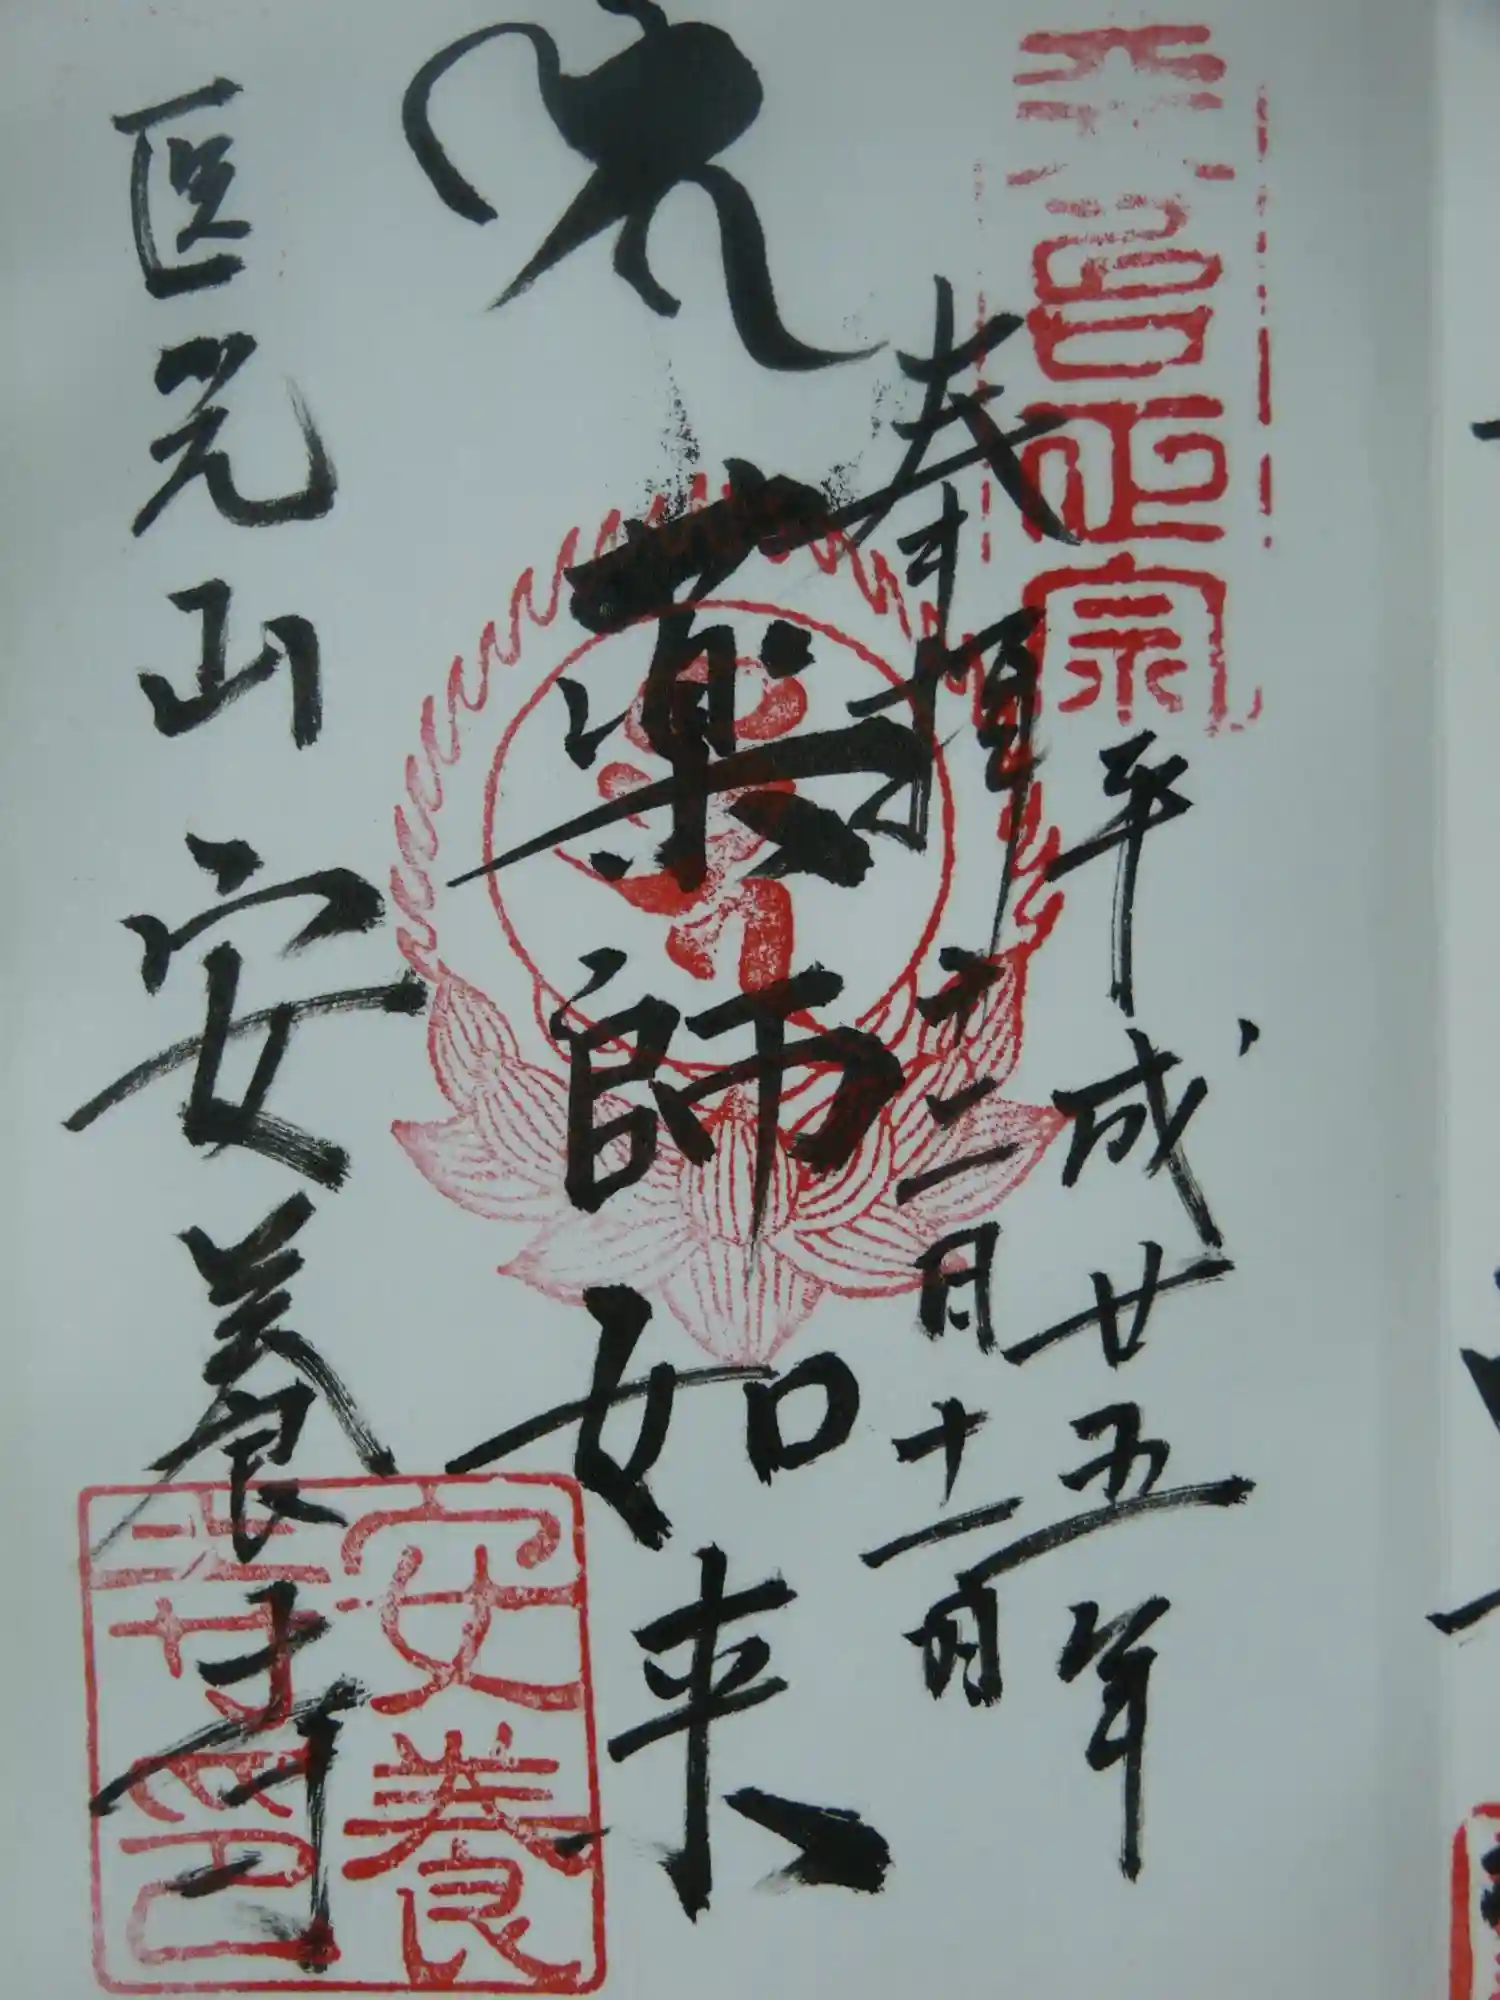 天台正宗
平成廿五年
奉拝
月十一
薬師如来
医光山安養寺
安養
寺印